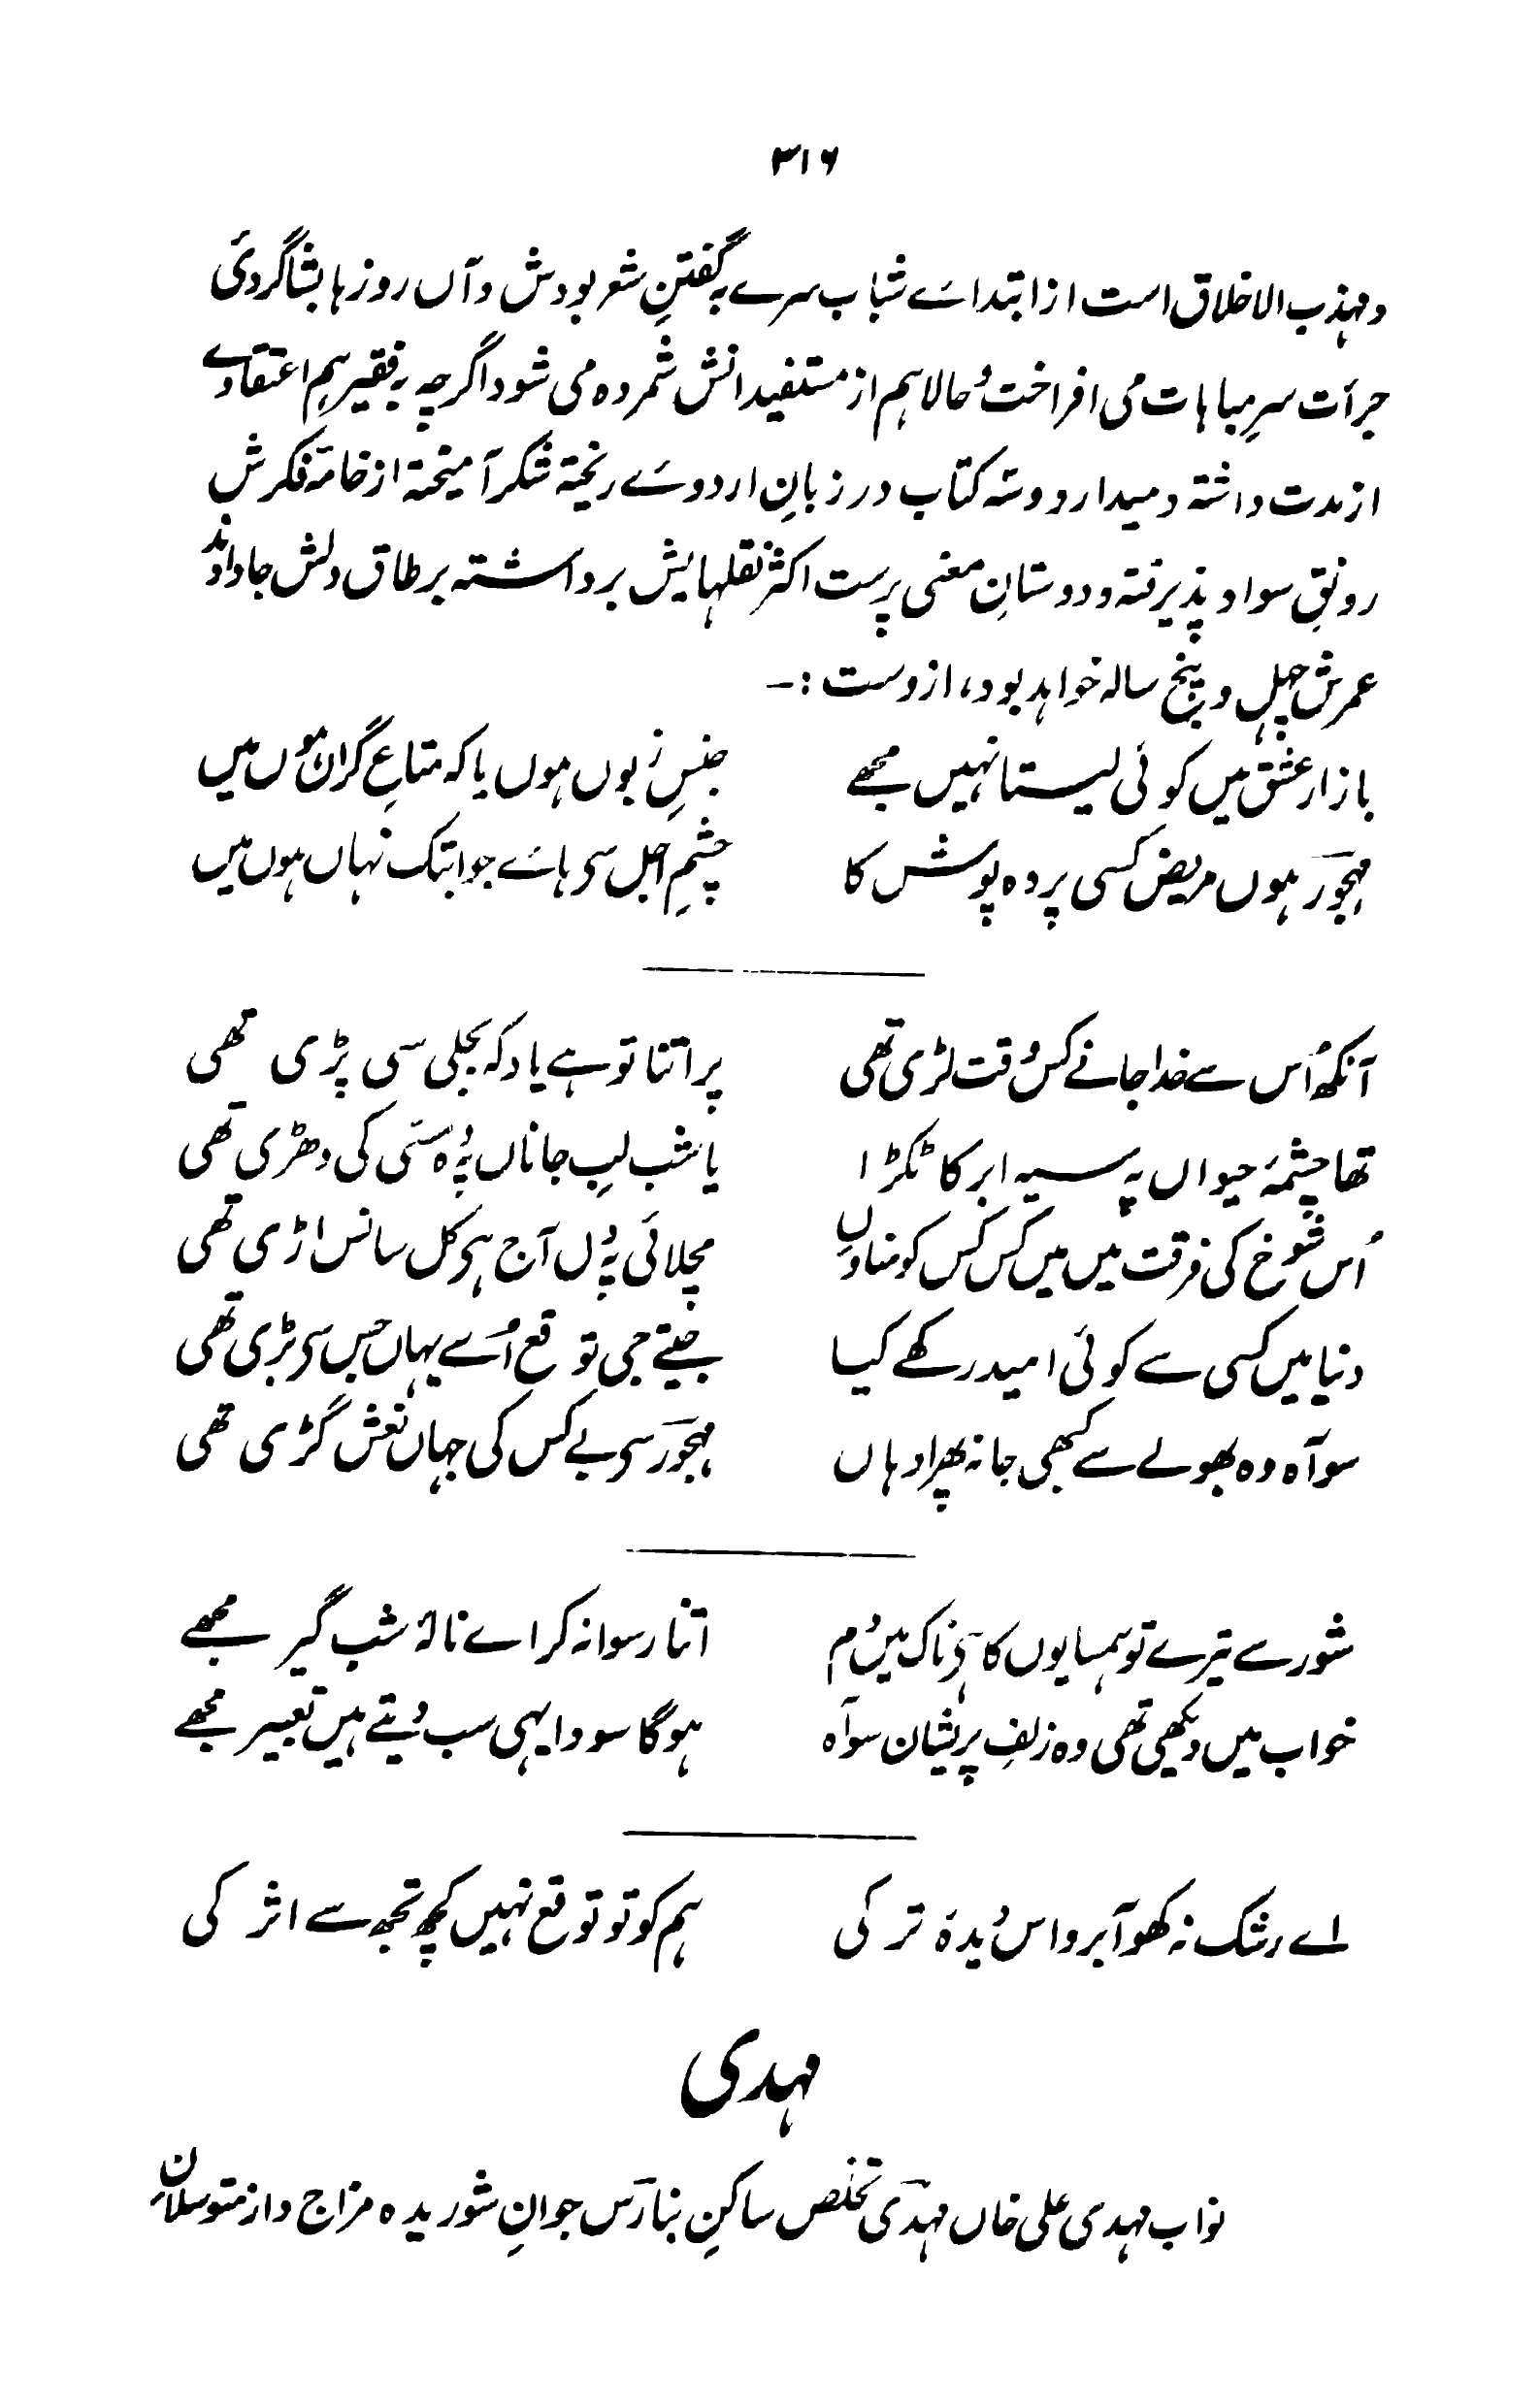 ۳۱۶
و مہذب الاخلاق است از ابتدائے شباب سرے بہ گفتنِ شعر بودش و آں روزہا بشاگردیٔ
جرأت سرِ مباہات می افراخت و حالا ہم از مستفیدانش شمردہ می شود اگرچہ بہ فقیر ہم اعتقادے
از مدت داشتہ و میدارد و سہ کتاب در زبانِ اردوئے ریختہ شکر آمیختہ از خامۂ فکرش
رونقِ سواد پذیرفتہ و دوستانِ معنی پرست اکثر نقلہایش برداشتہ بر طاق دلش جا دادند
عمرش چہل و پنج سالہ خواہد بود، ازوست :۔
بازار عشق میں کوئی لیستا نہیں مجھے جنسِ زبوں ہوں یا کہ متاعِ گراں ہوں میں
مہجور ہوں مریض کسی پردہ پوش کا چشمِ اجل سی ہائے جو ابتک نہاں ہوں میں
آنکھ اُس سے خدا جانے کس وقت لڑی تھی پر اتنا تو ہے یاد کہ بجلی سی پڑی تھی
تھا چشمۂ حیواں پہ سیہ ابر کا ٹکڑا یا شب لبِ جاناں پہ وہ مسّی کی دھڑی تھی
اُس شوخ کی فرقت میں میں کس کس کو مناؤں مچلائی پہ دل آج ہی کل سانس اڑی تھی
دنیا میں کسی سے کوئی امید رکھے کیا جیتے جی توقع اُسے یہاں جس سی بڑی تھی
سو آہ وہ بھولے سے کبھی جا نہ پھرا وہاں مہجور سی بے کس کی جہاں نعش گڑی تھی
شور سے تیرے تو ہمسایوں کا ہی ناک میں دم اتنا رسوا نہ کر اے نالۂ شب گیر مجھے
خواب میں دیکھی تھی وہ زلفِ پریشان سو آہ ہوگا سودا یہی سب دیتے ہیں تعبیر مجھے
اے رشک نہ کھو آبرو اس دیدۂ تر کی ہم کو تو توقع نہیں کچھ تجھ سے اثر کی
مہدی
نواب مہدی علی خاں مہدی تخلص ساکنِ بنارس جوانِ شوریدہ مزاج و از متوسلانِ